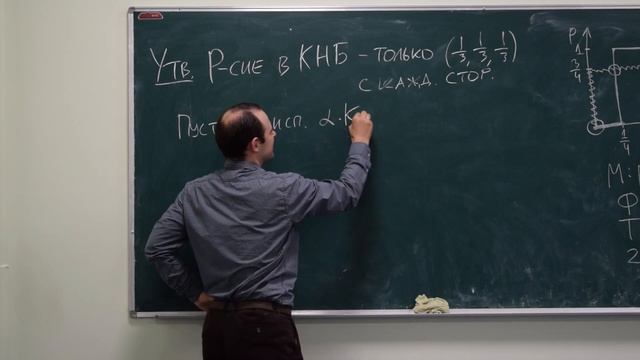 Утв. Р-сие в КНБ – только (1/3, 1/3, 1/3)
с кажд. стор.
исп. α·К
P
1
3/4
1/4
М:
Ф
Т
2